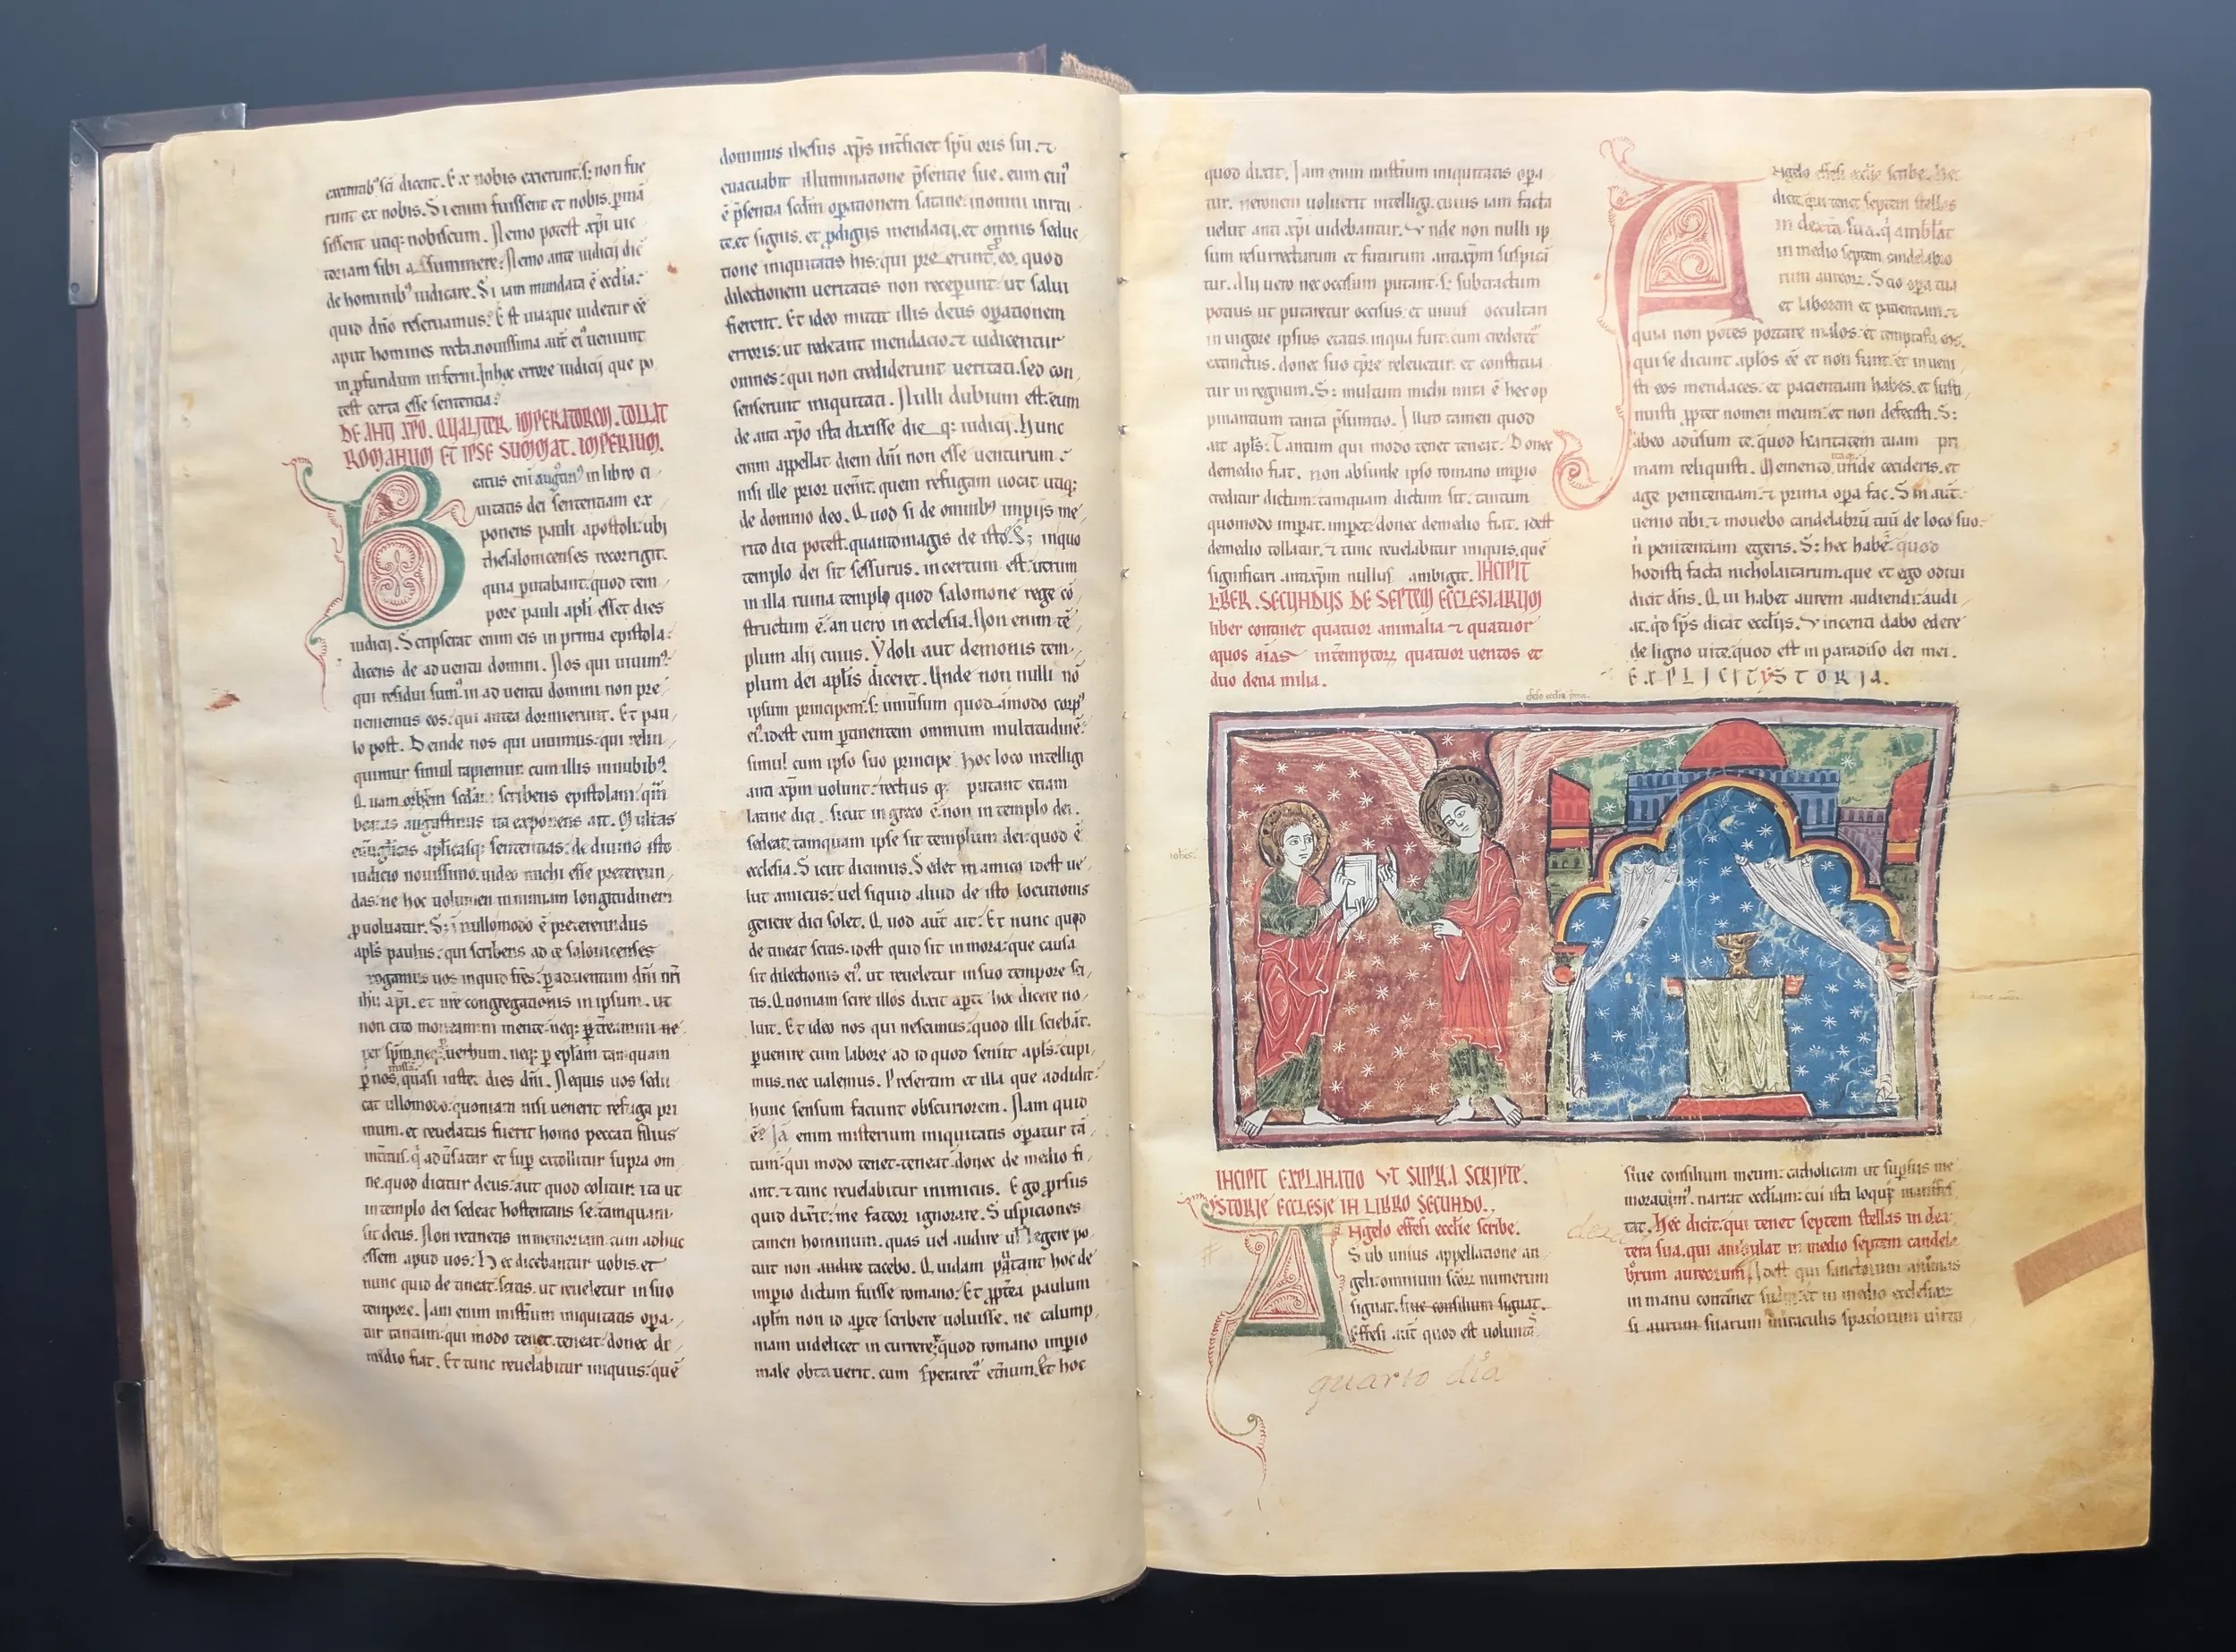 runt ex nobis. Si enim fuissent ex nobis. pmã
sissent utiq: nobiscum. Nemo potest xp̃i uic
toriam sibi assummere: Nemo ante iudicij diẽ
de hominib⁹ iudicare. Si iam mundata ẽ ecclia:
quid dño reseruamus? Est uia que uidetur eẽ
aput homines recta. nouissima aut̃ ei⁹ ueniunt
in pfundum inferni. In hoc errore iudicij que po
test certa esse sententia?
DE ANTI XPO. QUALITER. IMPERATOREM. TOLLAT
ROMANUM ET IPSE SUMMAT. IMPERIUM.
Beatus eni augustin⁹ in libro ci
uitatis dei sententiam ex
ponens pauli apostoli: ubj
thesalonicenses recorrigit.
quia putabant: quod tem
pore pauli apli esset dies
iudicij. Scripserat enim eis in prima epistola:
dicens de aduentu domini. Nos qui uiuim⁹:
qui residui sum⁹. in aduentu domini non pre
ueniemus eos: qui antea dormierunt. Et pau
lo post. Deinde nos qui uiuimus: qui relin
quimur simul rapiemur cum illis in nubib⁹.
scribens epistolam: qm̃
beatus augustinus ita exponens ait. Multas
euuglicas aplicasq: sententias: de diuino isto
iudicio nouissimo. uideo michi esse pretereun
das: ne hoc uolumen in nimiam longitudinem
puoluatur. S: nullomodo ẽ pretereundus
apls paulus: qui scribens ad tesalonicenses
rogamus uos inquid frẽs: p aduentum dñi nr̃i
ihu xpi. et nr̃e congregationis in ipsum. ut
non cito moueamini mente: neq: pterreamini ne
per sp̃m. neq: uerbum. neq: p epl̃am tamquam
p nos missã. quasi instet dies dñi. Nequis uos sedu
cat ullomodo: quoniam nisi uenerit refuga pri
mum. et reuelatus fuerit homo peccati filius
interitus. q̃ aduersatur et sup extollitur supra om
ne. quod dicitur deus: aut quod colitur: ita ut
in templo dei sedeat hostentans se: tamquam
sit deus. Non retinetis in memoriam: cum adhuc
essem apud uos: Hec dicebantur uobis. et
nunc quid detineat. scitis. ut reueletur in suo
tempore. Iam enim misterium iniquitatis opa
tur tantum: qui modo tenet. teneat: donec de
medio fiat. Et tunc reuelabitur iniquus: quẽ
dominus ihesus xp̃s interficiet spũ oris sui. ⁊
euacuabit illuminatione p̃sentie sue. eum cui⁹
ẽ p̃sentia scdm̃ opationem satane: in omni uirtu
te. et signis. et pdigijs mendacij. et omnis seduc
tione iniquitatis his: qui perierunt. eo. quod
dilectionem ueritatis non receperunt: ut salui
fierent. Et ideo mittit illis deus opationem
erroris: ut credeant mendacio. ⁊ iudicentur
omnes: qui non crediderunt ueritati. sed con
senserunt iniquitati. Nulli dubium est: eum
de anti xpo ista dixisse die q: iudicij. Hunc
enim appellat diem dñi non esse uenturum:
nisi ille prior uenit. quem refugam uocat utiq:
de domino deo. Quod si de omnib⁹ impijs me
rito dici potest. quantomagis de isto. S; in quo
templo dei sit sessurus. incertum est: utrum
in illa ruina templo quod salomone rege cõ
structum ẽ: an uero in ecclesia. Non enim tẽ
plum alij cuius. Ydoli aut demonis tem
plum dei apls diceret. Unde non nulli nõ
ipsum principem. s: uniuersum quodammodo corp⁹
ei⁹. idest eum ptinentem omnium multitudinẽ:
simul cum ipso suo principe hoc loco intelligi
anti xpm uolunt: rectius q: putant etiam
latine dici. sicut in greco ẽ: non in templo dei.
sedeat: tamquam ipse sit templum dei: quod ẽ
ecclesia. Sicut dicimus: Sedet in amico idest ue
lut amicus: uel siquid aliud de isto locutionis
genere dici solet. Quod aut̃ ait: Et nunc quid
detineat scitis. idest quid sit in mora: que causa
sit dilectionis ei⁹. ut reueletur in suo tempore sci
tis. Quoniam scire illos dixit apte hoc dicere no
luit. Et ideo nos qui nescimus: quod illi sciebãt.
puenire cum labore ad id quod sensit apls: cupi
mus. nec ualemus. Presertim et illa que addidit:
hunc sensum faciunt obscuriorem. Nam quid
ẽ? Iã enim misterium iniquitatis opatur tã
tum: qui modo tenet. teneat: donec de medio fi
ant. ⁊ tunc reuelabitur inimicus. Ego prsus
quid dixit: me fateor ignorare. Suspiciones
tamen hominum. quas uel audire ul legere po
tuit non audire tacebo. Quidam putant hoc de
imperio dictum fuisse romano: Et pptea paulum
aplm non id apte scribere uoluisse. ne calump
niam uidelicet incurreret: quod romano imperio
male obtauerit. cum speraret eternum. Et hoc
quod dixit. Iam enim misterium iniquitatis opa
tur. neronem uoluerit intelligi. cuius iam facta
uelut anti xpi uidebantur. Unde non nulli ip
sum resurrecturum et futurum antixpm suspica
tur. Alij uero nec occisum putant. s: subtractum
potius. ut putaretur occisus. et uiuus occultari
in uigore ipsius etatis. in qua fuit: cum crederet⁹
extinctus. donec suo tpre releuetur: et constitua
tur in regnum. S: multum michi mira ẽ hec op
pinantium tanta psumtio. Illud tamen quod
ait apls: Tantum qui modo tenet teneat. Donec
demedio fiat. non absurde ipso romano imperio
creditur dictum: tamquam dictum sit. tantum
quomodo imperat. imperet: donec demedio fiat. idest
demedio tollatur. ⁊ tunc reuelabitur iniquus. quẽ
significari antixpm nullus ambigit. INCIPIT
LIBER. SECUNDUS DE SEPTEM ECCLESIARUM
liber continet quatuor animalia ⁊ quatuor
equos quatuor uentos et
duo dena milia.
Angelo effesi ecclie scribe. Hec
dicit. qui tenet septem stellas
in dextra sua. q̃ ambulat
in medio septem candelabro
rum aureorum. Scio opa tua
et laborem et patientiam. ⁊
quia non potes portare malos: et temptasti eos.
qui se dicunt aplos eẽ et non sunt: et inueni
sti eos mendaces. et pacientiam habes. et susti
nuisti ppter nomen meum: et non defecisti. S:
abeo aduersum te. quod karitatem tuam pri
mam reliquisti. Memento itaq. unde cecideris. et
age penitentiam. ⁊ prima opa fac. Sin aut̃.
uenio tibi. ⁊ mouebo candelabrũ tuũ de loco suo.
ñ penitentiam egeris. S: hec habes. quod
hodisti facta nicholaitarum. que et ego odiui
dicit dñs. Qui habet aurem audiendi: audi
at. qd sp̃s dicat ecclijs. Vincenti dabo edere
de ligno uite. quod est in paradiso dei mei.
EXPLICIT YSTORIA.
INCIPIT EXPLANATIO UT SUPRA SCRIPTE.
YSTORJE ECCLESJE IN LIBRO SECUNDO.
Angelo effesi ecclie scribe.
Sub unius appellatione an
geli: omnium scorum numerum
signat. siue consilium signat.
Effesi aut̃ quod est uoluntas
quarto dia
siue consilium meum: catholicam ut supsius me
morauim⁹. narrat eccliam: cui ista loquit manifes
tat. Hec dicit: qui tenet septem stellas in dex
tera sua. qui ambulat in medio septem candela
brorum aureorum. Idest qui sanctorum animas
in manu continet in medio ecclesiar